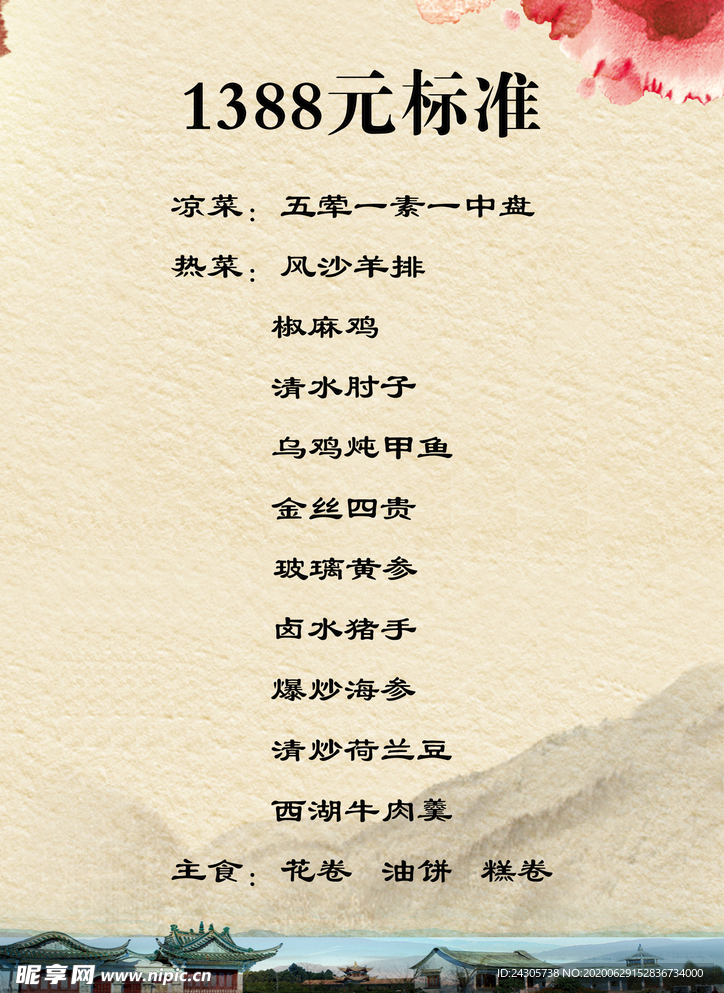 1388元标准
凉菜：五荤一素一中盘
热菜：风沙羊排
椒麻鸡
清水肘子
乌鸡炖甲鱼
金丝四贵
玻璃黄参
卤水猪手
爆炒海参
清炒荷兰豆
西湖牛肉羹
主食：花卷 油饼 糕卷
昵享网 www.nipic.cn
ID:24305738 NO:20200629152836734000